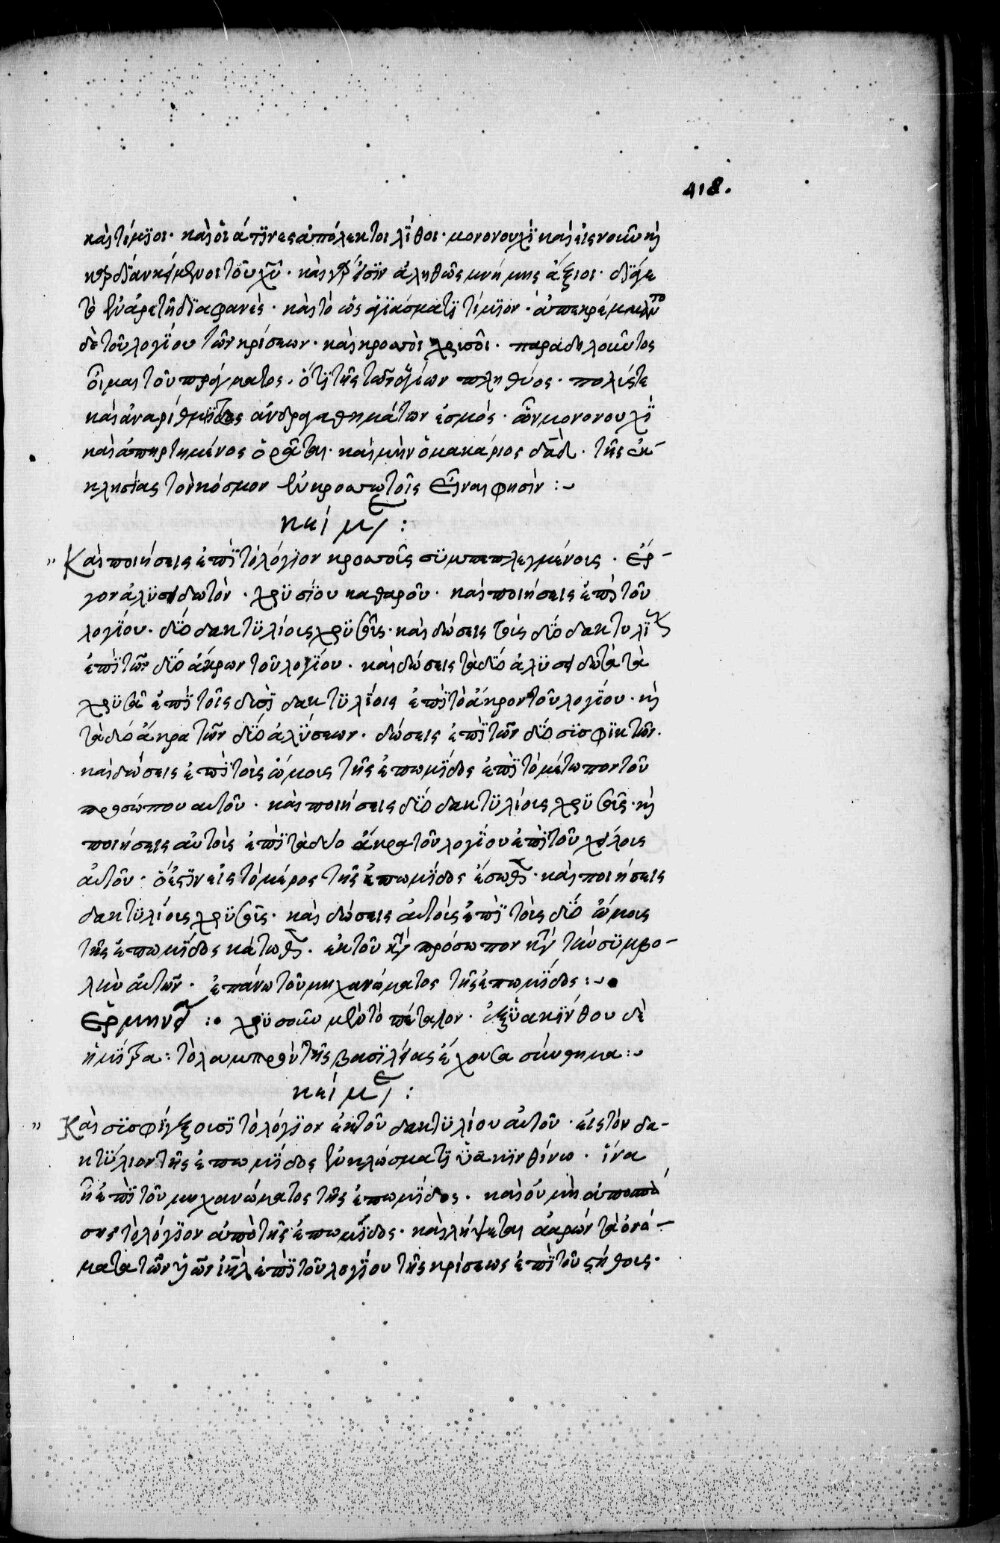 418.
καὶ τίμιοι· καὶ οἱ ἅγιοι ἀπόλεκτοι λίθοι· μονονουχὶ καὶ εἰς νοῦν κỳ
καρδίαν κείμενοι τοῦ χυ̅· καὶ γάρ εἰσιν ἀληθῶς μνήμης ἄξιοι· διά γε
τὸ ἐν ἀρετῇ διαφανὲς· καὶ τὸ ὡς ἁγιάσματι τίμιον· ἀπεκρέμαντο
δὲ τοῦ λογίου τῶν κρίσεων· καὶ κροσσοὶ χρυσοῖ· παραδηλοῦντος
οἶμαι τοῦ πράγματος, ὅτι τῆς τῶν ἁγίων πληθύος· πολύς τε
καὶ ἀναρίθμητος ἀνδραγαθημάτων ἑσμός· ὧν μονονουχὶ
καὶ ἀπηρτημένος ὁρᾶται· καὶ μὴν ὁ μακάριος δα̅δ· τῆς ἐκ-
κλησίας τὸν κόσμον ἐν κροσσωτοῖς εἶναι φησίν :~
κείμε :
" Καὶ ποιήσεις ἐπὶ τὸ λόγιον κροσσοὺς συμπεπλεγμένους· ἔρ-
γον ἁλυσιδωτὸν· χρυσίου καθαροῦ· καὶ ποιήσεις ἐπὶ τοῦ
λογίου· δύο δακτυλίους χρυσοῦς· καὶ δώσεις τοὺς δύο δακτυλίους
ἐπὶ τῶν δύο ἄκρων τοῦ λογίου· καὶ δώσεις τὰ δύο ἁλυσιδωτὰ τὰ
χρυσᾶ ἐπὶ τοῖς δυσὶ δακτυλίοις ἐπὶ τὸ ἄκρον τοῦ λογίου· κỳ
τὰ δύο ἄκρα τῶν δύο ἁλύσεων· δώσεις ἐπὶ τῶν δύο συσφικτῶν.
καὶ δώσεις ἐπὶ τοὺς ὤμους τῆς ἐπωμίδος ἐπὶ τὸ μέτωπον τοῦ
προσώπου αὐτοῦ· καὶ ποιήσεις δύο δακτυλίους χρυσοῦς· κỳ
ποιήσεις αὐτοὺς ἐπὶ τὰ δύο ἄκρα τοῦ λογίου ἐπὶ τοῦ χείλους
αὐτοῦ· ὅ ἐστιν εἰς τὸ μέρος τῆς ἐπωμίδος ἔσωθεν· καὶ ποιήσεις
δακτυλίους χρυσοῦς· καὶ δώσεις αὐτοὺς ἐπὶ τοὺς δύο ὤμους
τῆς ἐπωμίδος κάτωθεν· ἐκ τοῦ κατὰ πρόσωπον κατὰ τὴν συμβο-
λὴν αὐτῶν· ἐπάνω τοῦ μηχανώματος τῆς ἐπωμίδος :~
Ἑρμηνεία : χρυσοῦν μὲν τὸ πέταλον· ἐξ ὑακίνθου δὲ
ἡ μίτρα : τὸ λαμπρὸν τῆς βασιλείας ἔχουσα σύνθημα :~
κείμε :
" Καὶ συσφίγξουσι τὸ λόγιον ἐκ τοῦ δακτυλίου αὐτοῦ· εἰς τὸν δα-
κτύλιον τῆς ἐπωμίδος ἐν κλώσματι ὑακινθίνω· ἵνα
ᾖ ἐπὶ τοῦ μηχανώματος τῆς ἐπωμίδος· καὶ οὐ μὴ ἀποσπά
σης τὸ λόγιον ἀπὸ τῆς ἐπωμίδος· καὶ λήψεται ἀαρὼν τὰ ὀνό-
ματα τῶν υἱῶν ιη̅λ ἐπὶ τοῦ λογίου τῆς κρίσεως ἐπὶ τοῦ στήθους·